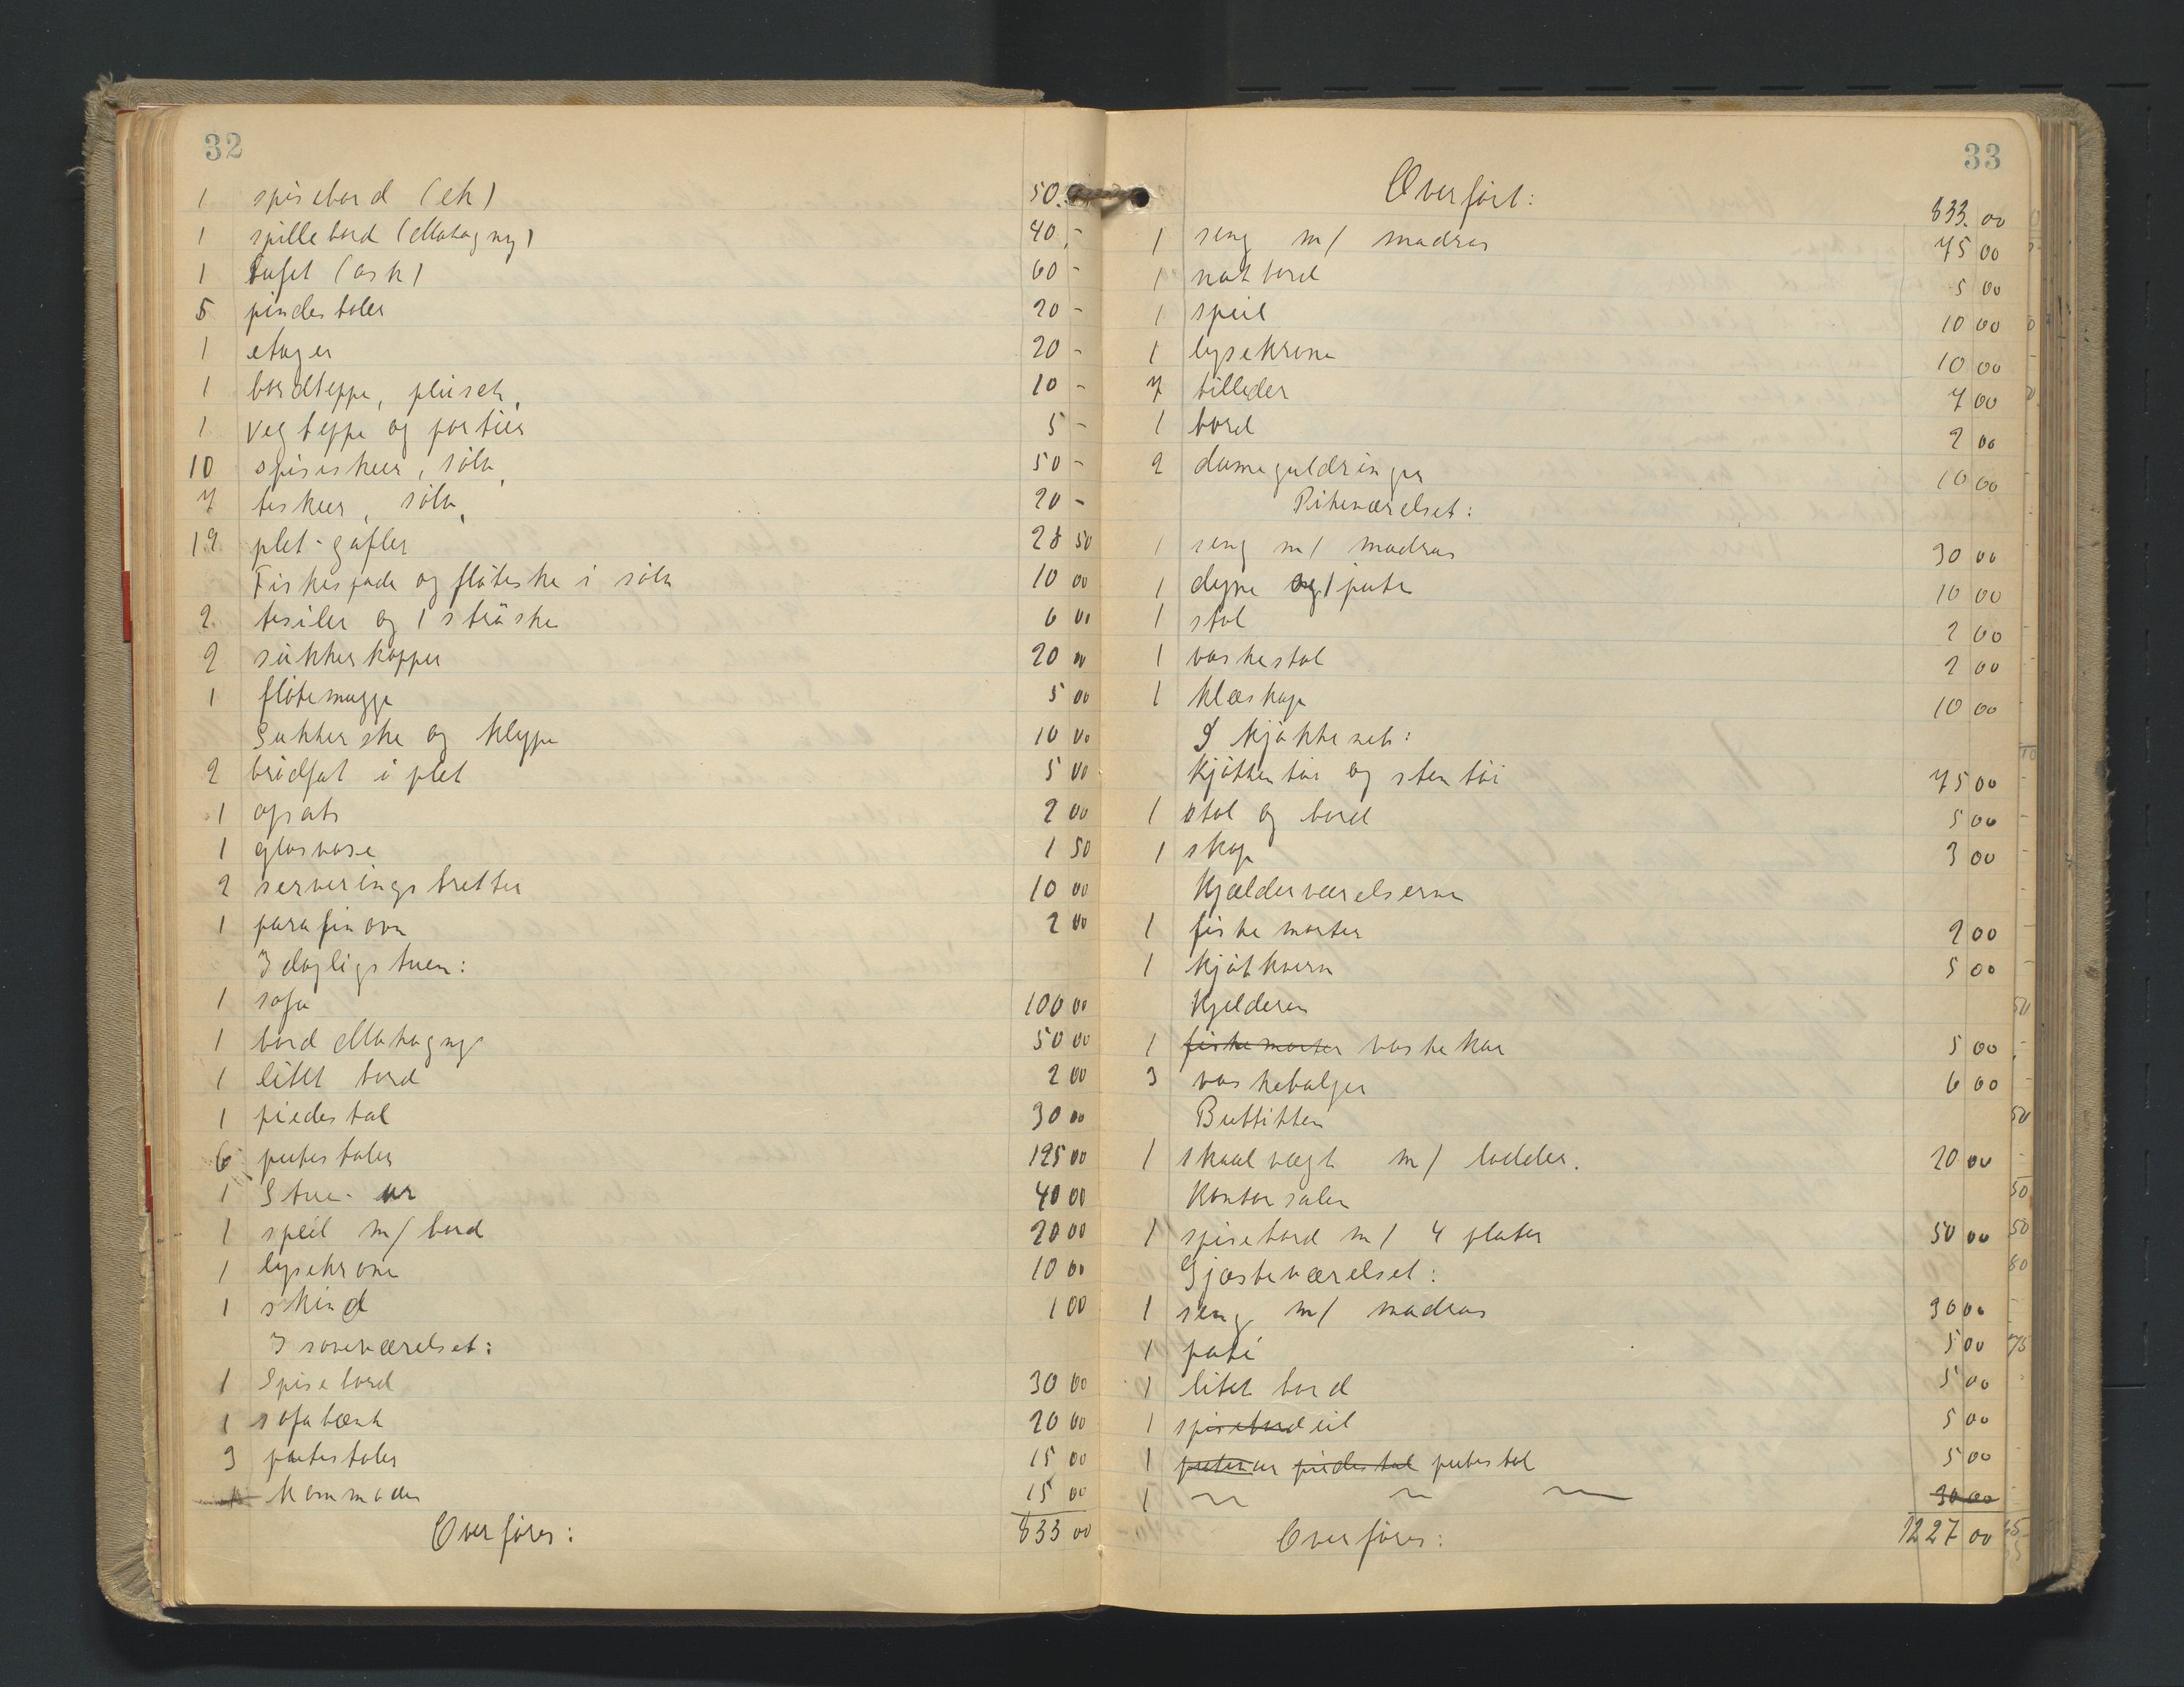 32
1 spisebord (ek) 50.-
1 spillebord (Mahogny) 40,-
1 bufet (ask) 60 -
5 pindestoler 20 -
1 etager 20 -
1 bordteppe, plüsch, 10 -
1 vegteppe og portier 5 -
10 spiseskeer, sölv, 50 -
7 teskeer, sölv, 20 -
19 plet-gafler 28 50
Fiskespade og flöteske i sölv 10 00
2 tesiler og 1 ströske 6 00
2 sukkerkopper 20 00
1 flötemugge 5 00
Sukkerske og klype 10 00
2 brödfat i plet 5 00
1 opsats 2 00
1 glasvase 1 50
2 serveringsbretter 10 00
1 parafinovn 2 00
I dagligstuen:
1 sofa 100 00
1 bord Mahogny 50 00
1 litet bord 2 00
1 piedestal 30 00
6 putestoler 125 00
1 Stue-ur 40 00
1 speil m/ bord 20 00
1 lysekrone 10 00
1 skind 1 00
I soveværelset:
1 Spisebord 30 00
1 sofabænk 20 00
3 putestoler 15 00
kommoder 15 00
Overføres: 833 00
33
Overført: 833. 00
1 seng m/ madras 75 00
1 natbord 5 00
1 speil 10 00
1 lysekrone 10 00
7 billeder 7 00
1 bord 2 00
2 dameguldringer 10 00
Pikeværelset:
1 seng m/ madras 30 00
1 dyne og 1 pute 10 00
1 stol 2 00
1 vaskestol 2 00
1 klæskap 10 00
I kjøkkenet:
kjökkentöi og stentöi 75 00
1 stol og bord 5 00
1 skap 3 00
Kjælderværelserne
1 fiskemorter 2 00
1 kjötkvern 5 00
Kjelderen
1 fiskemorter vaskekar 5 00
3 vaskebaljer 6 00
Buttikken
1 skaalvegt m/ lodder. 20 00
Kontorsalen
1 spisebord m/ 4 plater 50 00
Gjæsteværelset:
1 seng m/ madras 30 00
1 5 00
1 litet bord 5 00
1 spisebordeil 5 00
1 piedestal putestol 5 00
1 ~ ~ ~ 30 00
Overføres: 1227 00